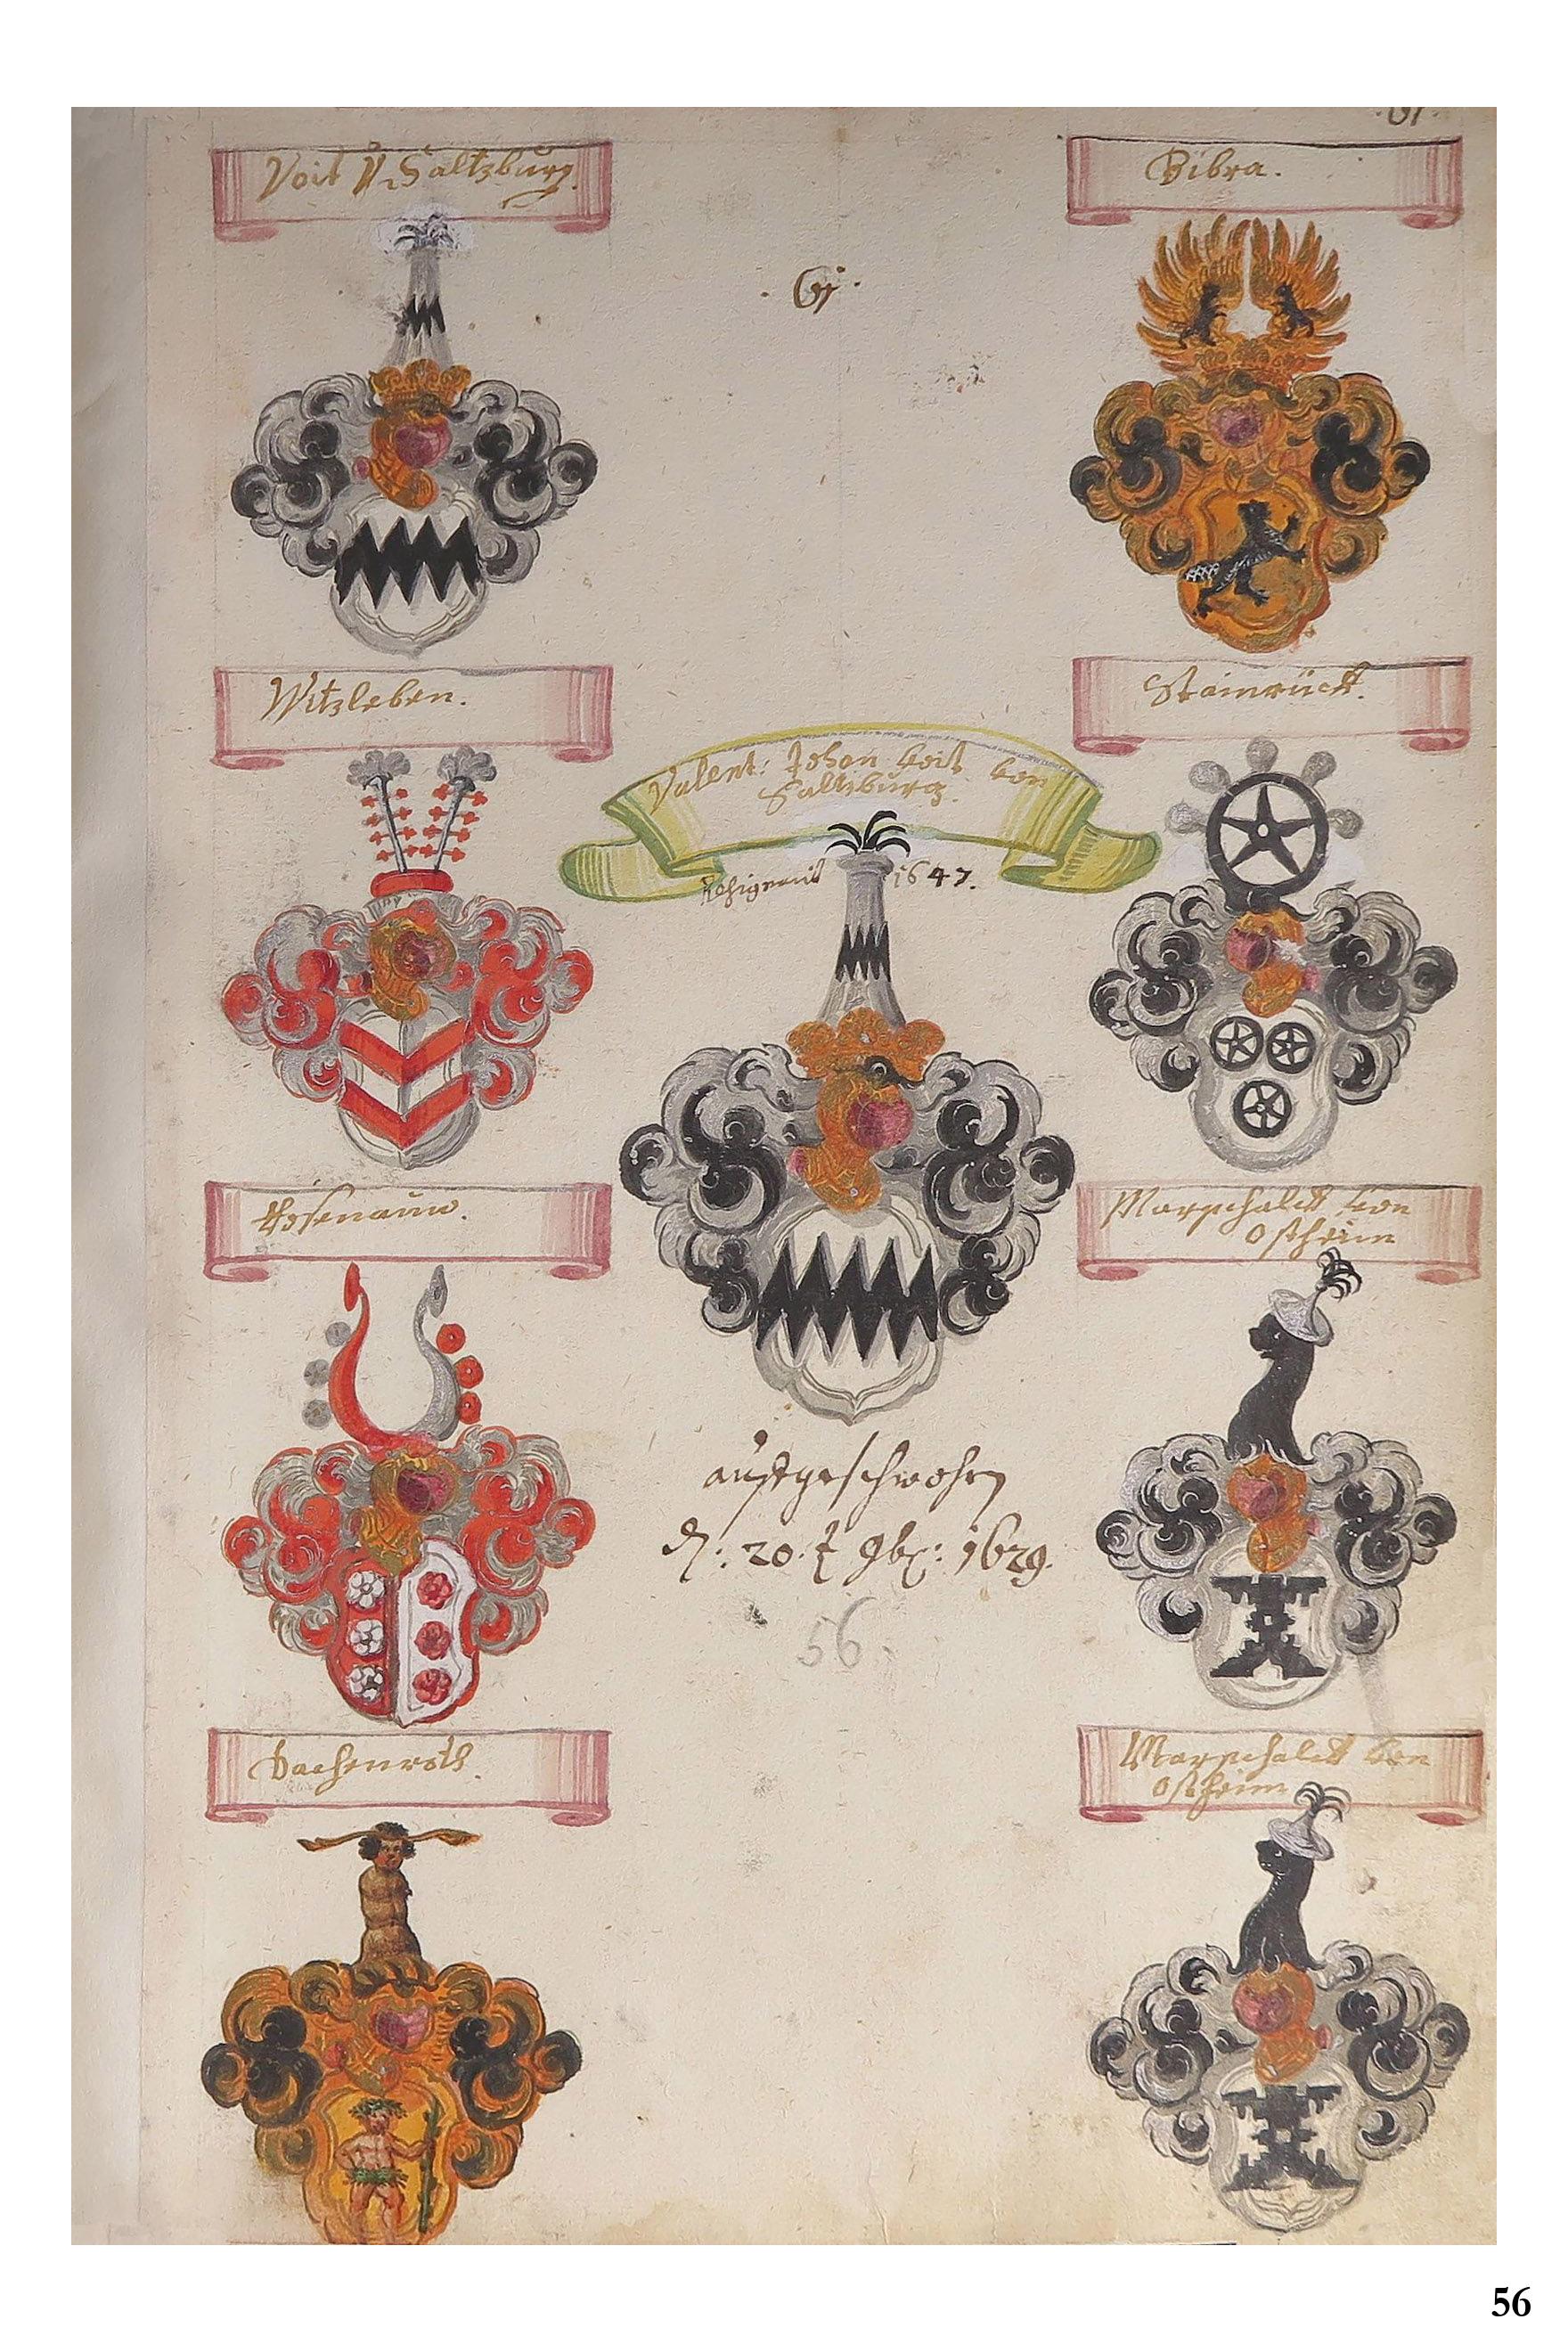 61.
Voit V. Saltzburg.
Bibra.
61.
Witzleben.
Stainrück.
Valent: Johan Veit von
Saltzburg.
Resignavit 1647.
Rosenauw.
Marschalck von
Ostheim
auffgeschwohrn
d: 20. 9br: 1629.
56.
Dachenroth.
Marschalck von
Ostheim
56